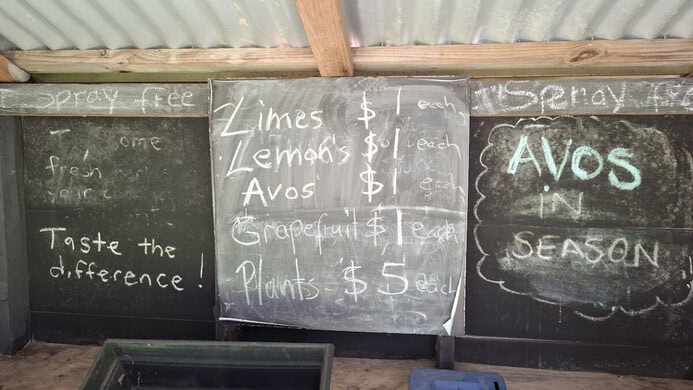 Spray free
ome
fresh
your
Taste the
difference!
Limes $1 each
Lemons $1 each
Avos $1 each
Grapefruit $1 each
Plants - $5 each
Spray fre
AVOS
IN
SEASON